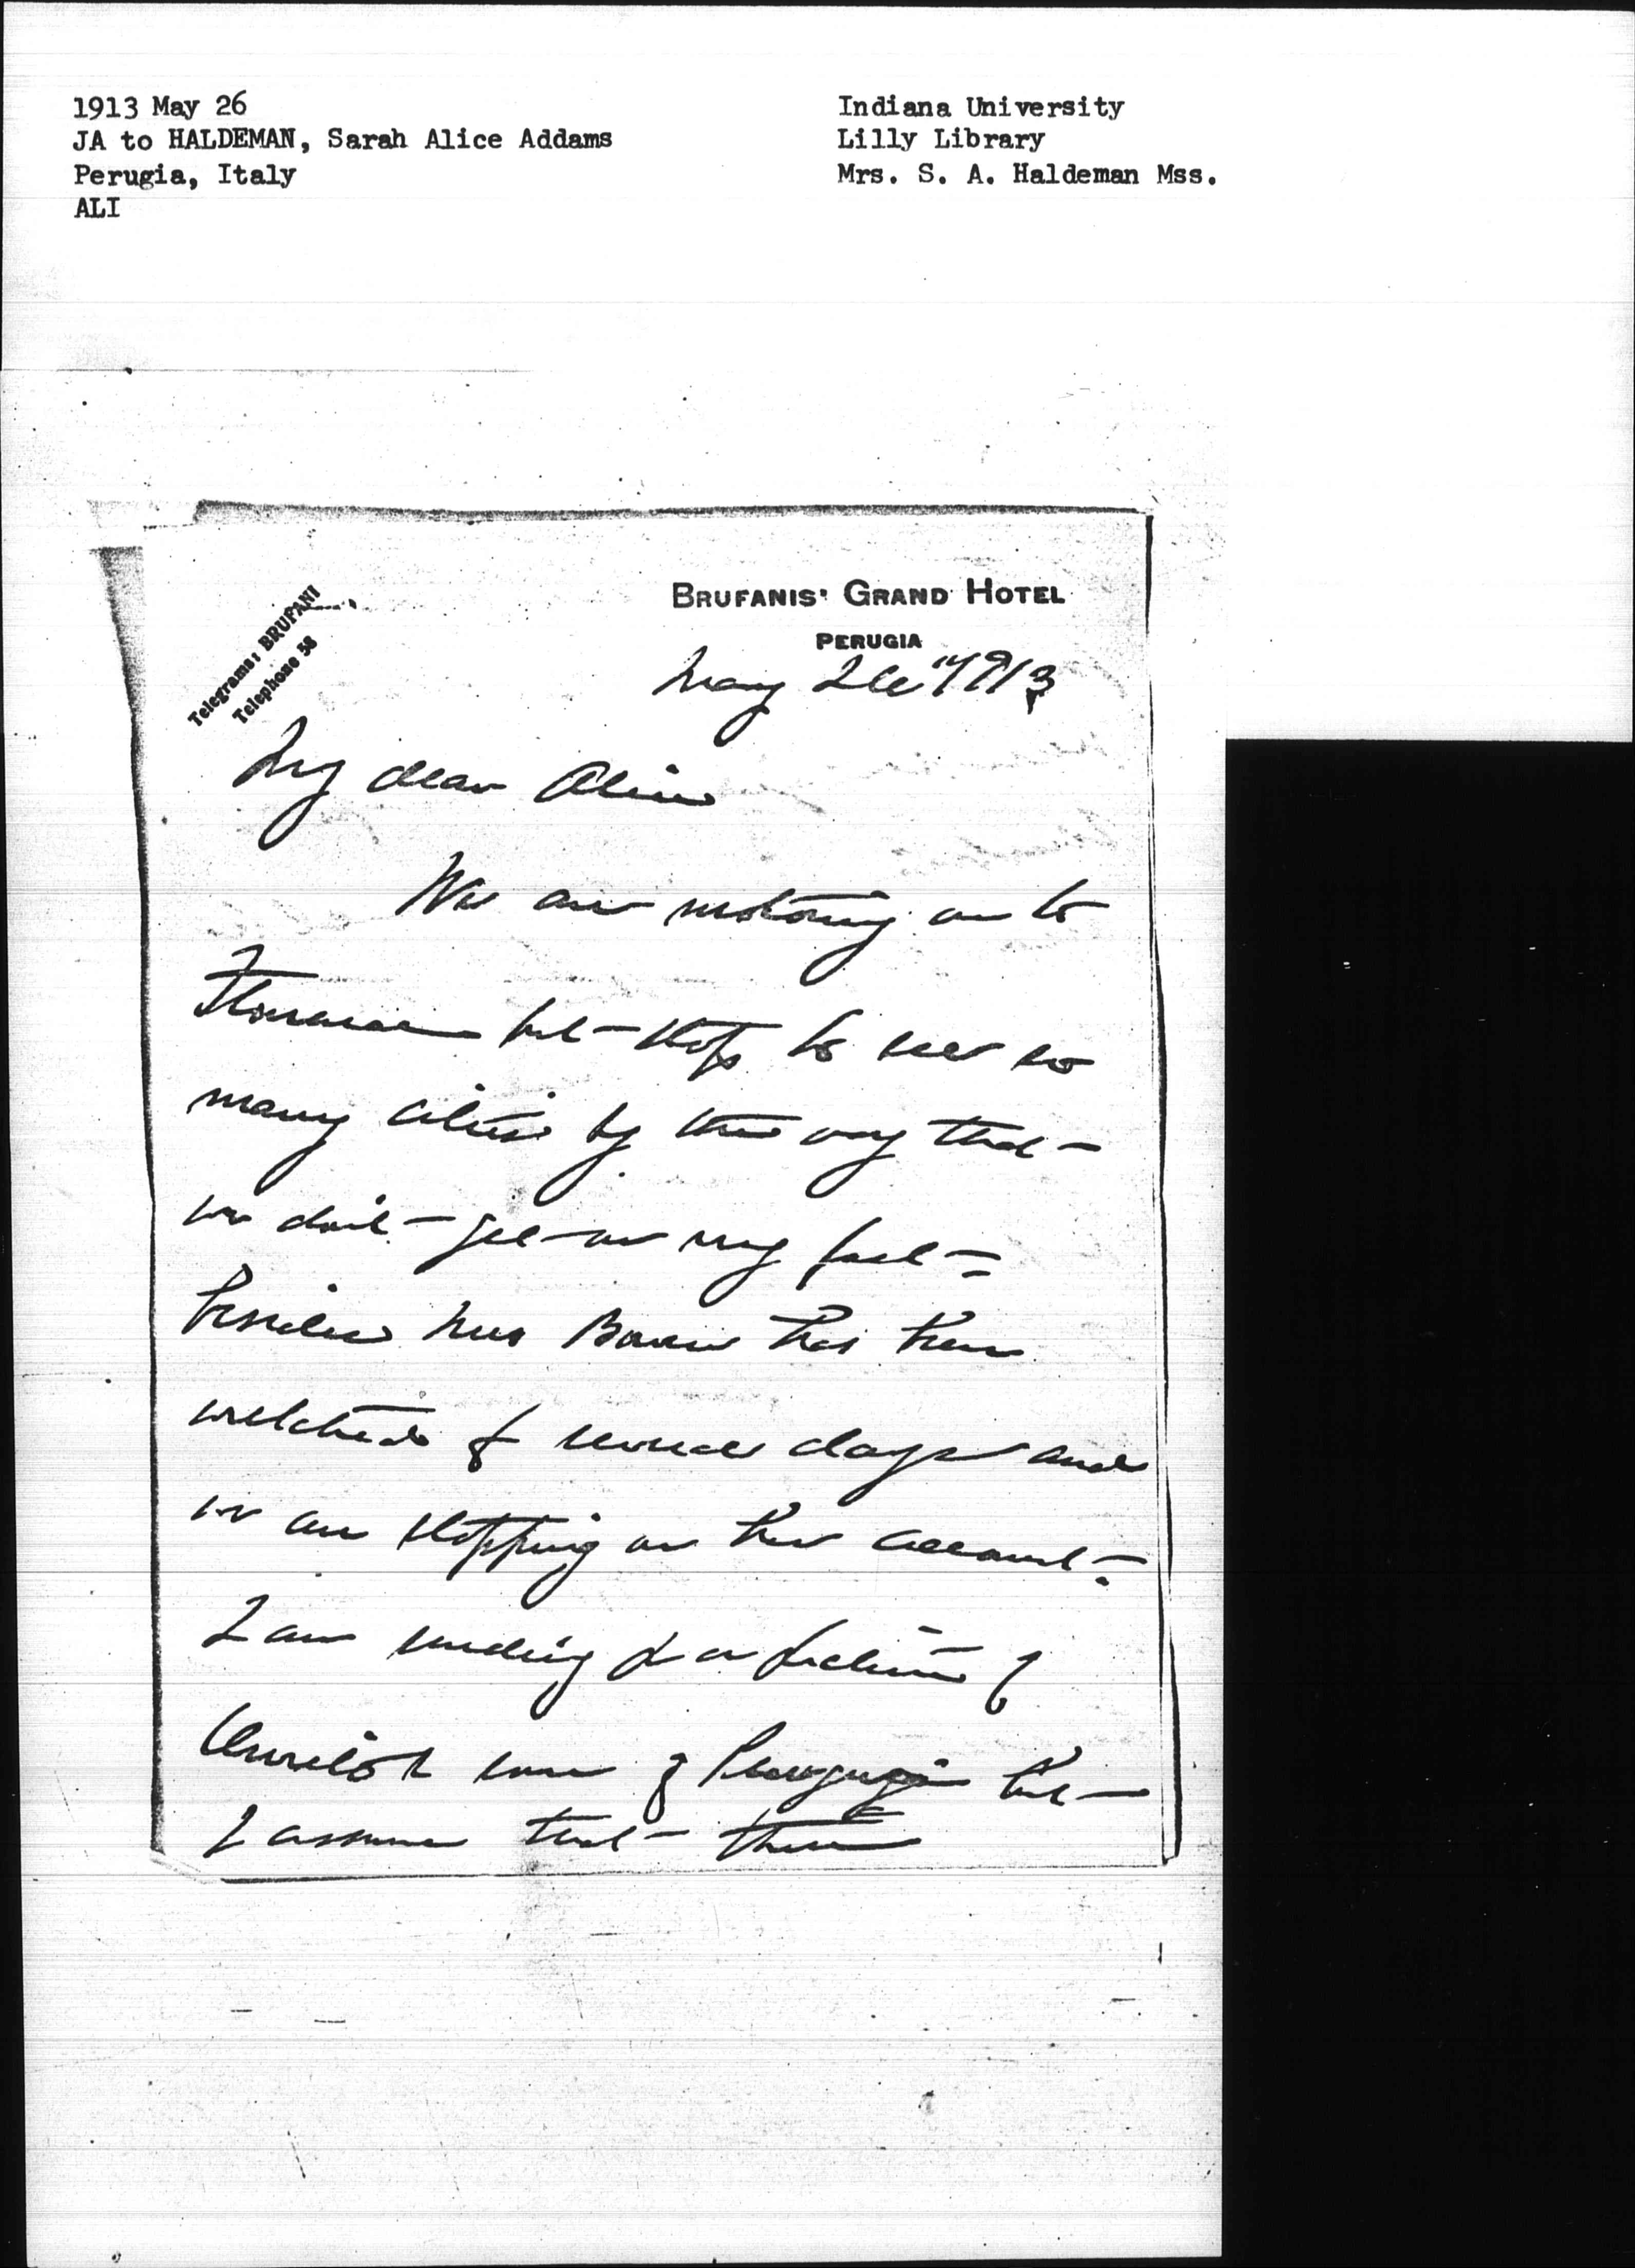 1913 May 26
JA to HALDEMAN, Sarah Alice Addams
Perugia, Italy
ALI
Indiana University
Lilly Library
Mrs. S. A. Haldeman Mss.
Telegrams: BRUFANI
Telephone 58
BRUFANIS' GRAND HOTEL
PERUGIA
May 26" 1913
My dear Alice
We are motoring on to
Florence but stop to see so
many cities by the way that
we don't get on very fast.
Besides Mrs Bowen has been
wretched for several days and
we are stopping on her account.
I am sending you a picture of
one of Perugia but
I assume that there